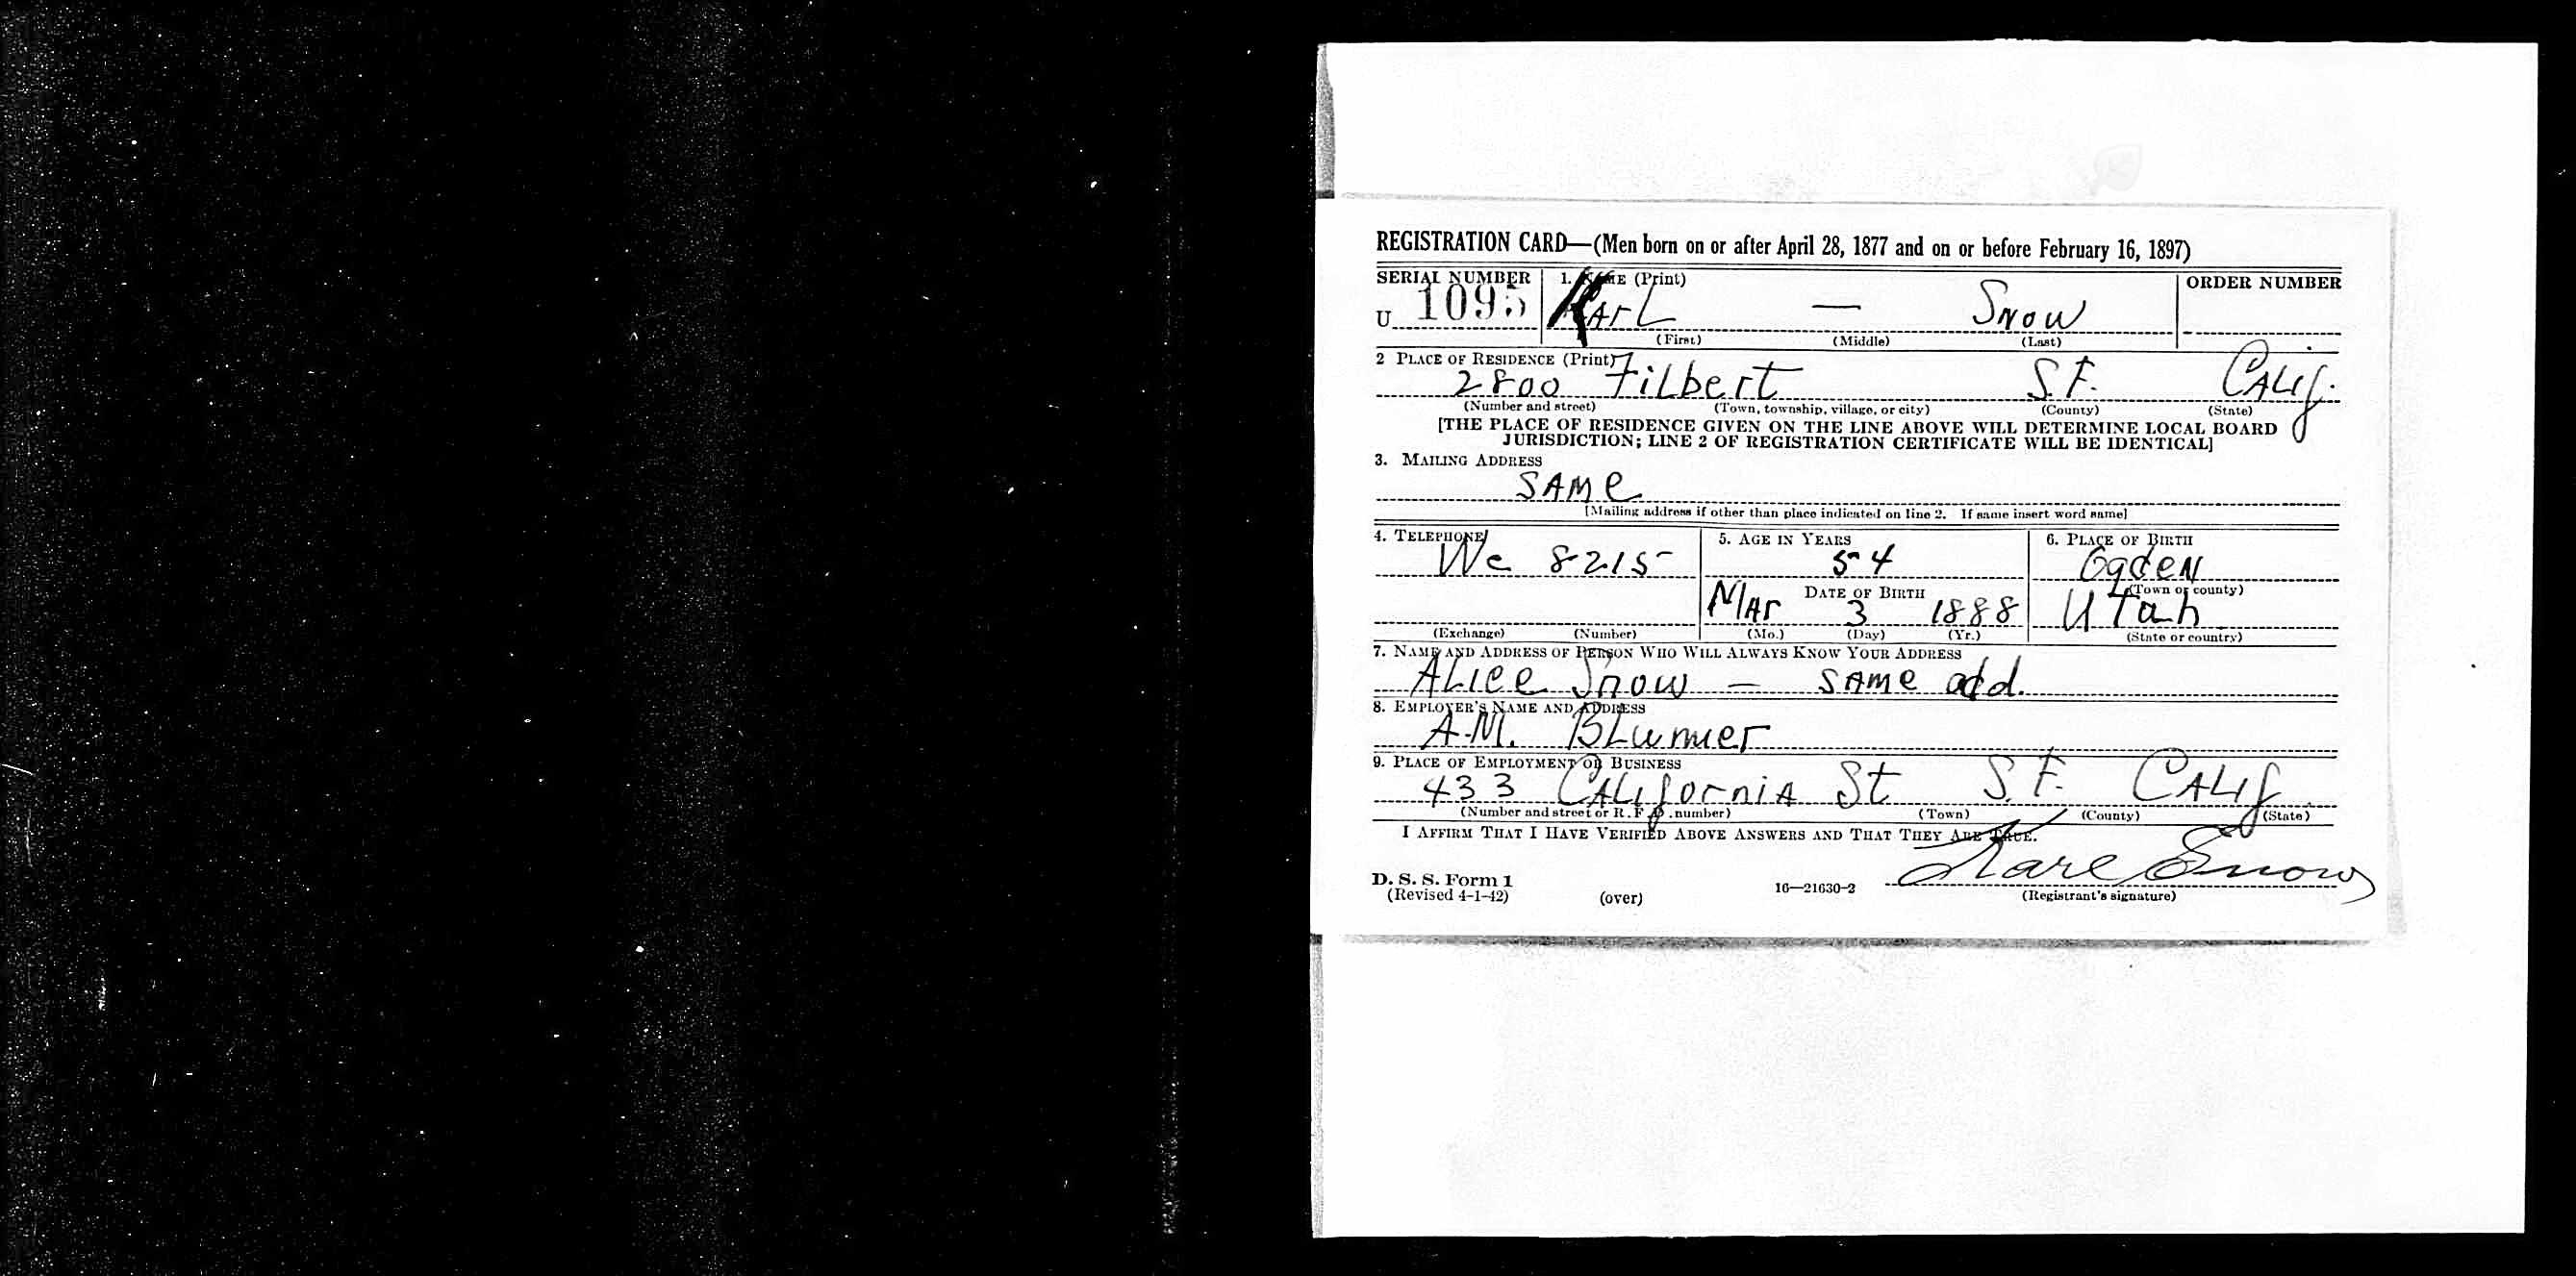 REGISTRATION CARD—(Men born on or after April 28, 1877 and on or before February 16, 1897)
SERIAL NUMBER 1. NAME (Print) ORDER NUMBER
U 1095 Karl — Snow
(First) (Middle) (Last)
2 PLACE OF RESIDENCE (Print)
2800 Filbert S.F. Calif.
(Number and street) (Town, township, village, or city) (County) (State)
[THE PLACE OF RESIDENCE GIVEN ON THE LINE ABOVE WILL DETERMINE LOCAL BOARD
JURISDICTION; LINE 2 OF REGISTRATION CERTIFICATE WILL BE IDENTICAL]
3. MAILING ADDRESS
SAME
[Mailing address if other than place indicated on line 2. If same insert word same]
4. TELEPHONE 5. AGE IN YEARS 6. PLACE OF BIRTH
We 8215 54 Ogden
DATE OF BIRTH (Town or county)
Mar 3 1888 Utah
(Exchange) (Number) (Mo.) (Day) (Yr.) (State or country)
7. NAME AND ADDRESS OF PERSON WHO WILL ALWAYS KNOW YOUR ADDRESS
Alice Snow — same add.
8. EMPLOYER'S NAME AND ADDRESS
A.M.
9. PLACE OF EMPLOYMENT OR BUSINESS
433 California St S.F. Calif
(Number and street or R. F. D. number) (Town) (County) (State)
I AFFIRM THAT I HAVE VERIFIED ABOVE ANSWERS AND THAT THEY ARE TRUE.
Karl Snow
D. S. S. Form 1
(Revised 4-1-42) (over) 16—21630-2 (Registrant's signature)